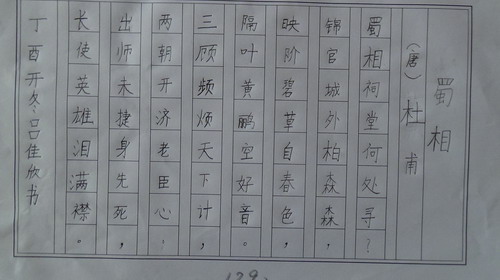 蜀相
(唐)杜甫
蜀相祠堂何处寻?
锦官城外柏森森,
映阶碧草自春色,
隔叶黄鹂空好音。
三顾频烦天下计,
两朝开济老臣心。
出师未捷身先死,
长使英雄泪满襟。
丁酉开冬吕佳欣书